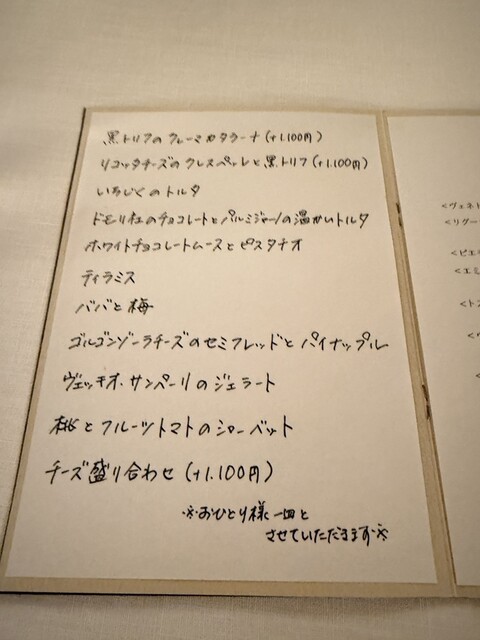 黒トリフのクレーマカタラーナ(+1.100円)
リコッタチーズのクレスペッレと黒トリフ(+1.100円)
いちじくのトルタ
ドモリ社のチョコレートとパルミジャーノの温かいトルタ
ホワイトチョコレートムースとピスタチオ
ティラミス
ババと梅
ゴルゴンゾーラチーズのセミフレッドとパイナップル
ヴェッキオ・サンペーリのジェラート
桃とフルーツトマトのシャーベット
チーズ盛り合わせ(+1.100円)
※おひとり様一皿と
させていただきます※
<ヴェネト
<リグー
<ピエ
<エミ
<トス